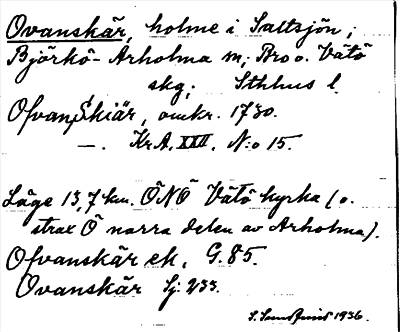 Ovanskär, holme i Saltsjön;
Björkö-Arholma sn; Bro o. Vätö
skg; Sthlms l.
Ofvan Skiär, omkr. 1730.
—. Kr.A. XXII, N:o 15.
Läge 13,7 km. ÖNÖ Vätö kyrka (o.
strax Ö norra delen av Arholma).
Ofvanskär ek. G. 85.
Ovanskär Sj: 233.
1936.